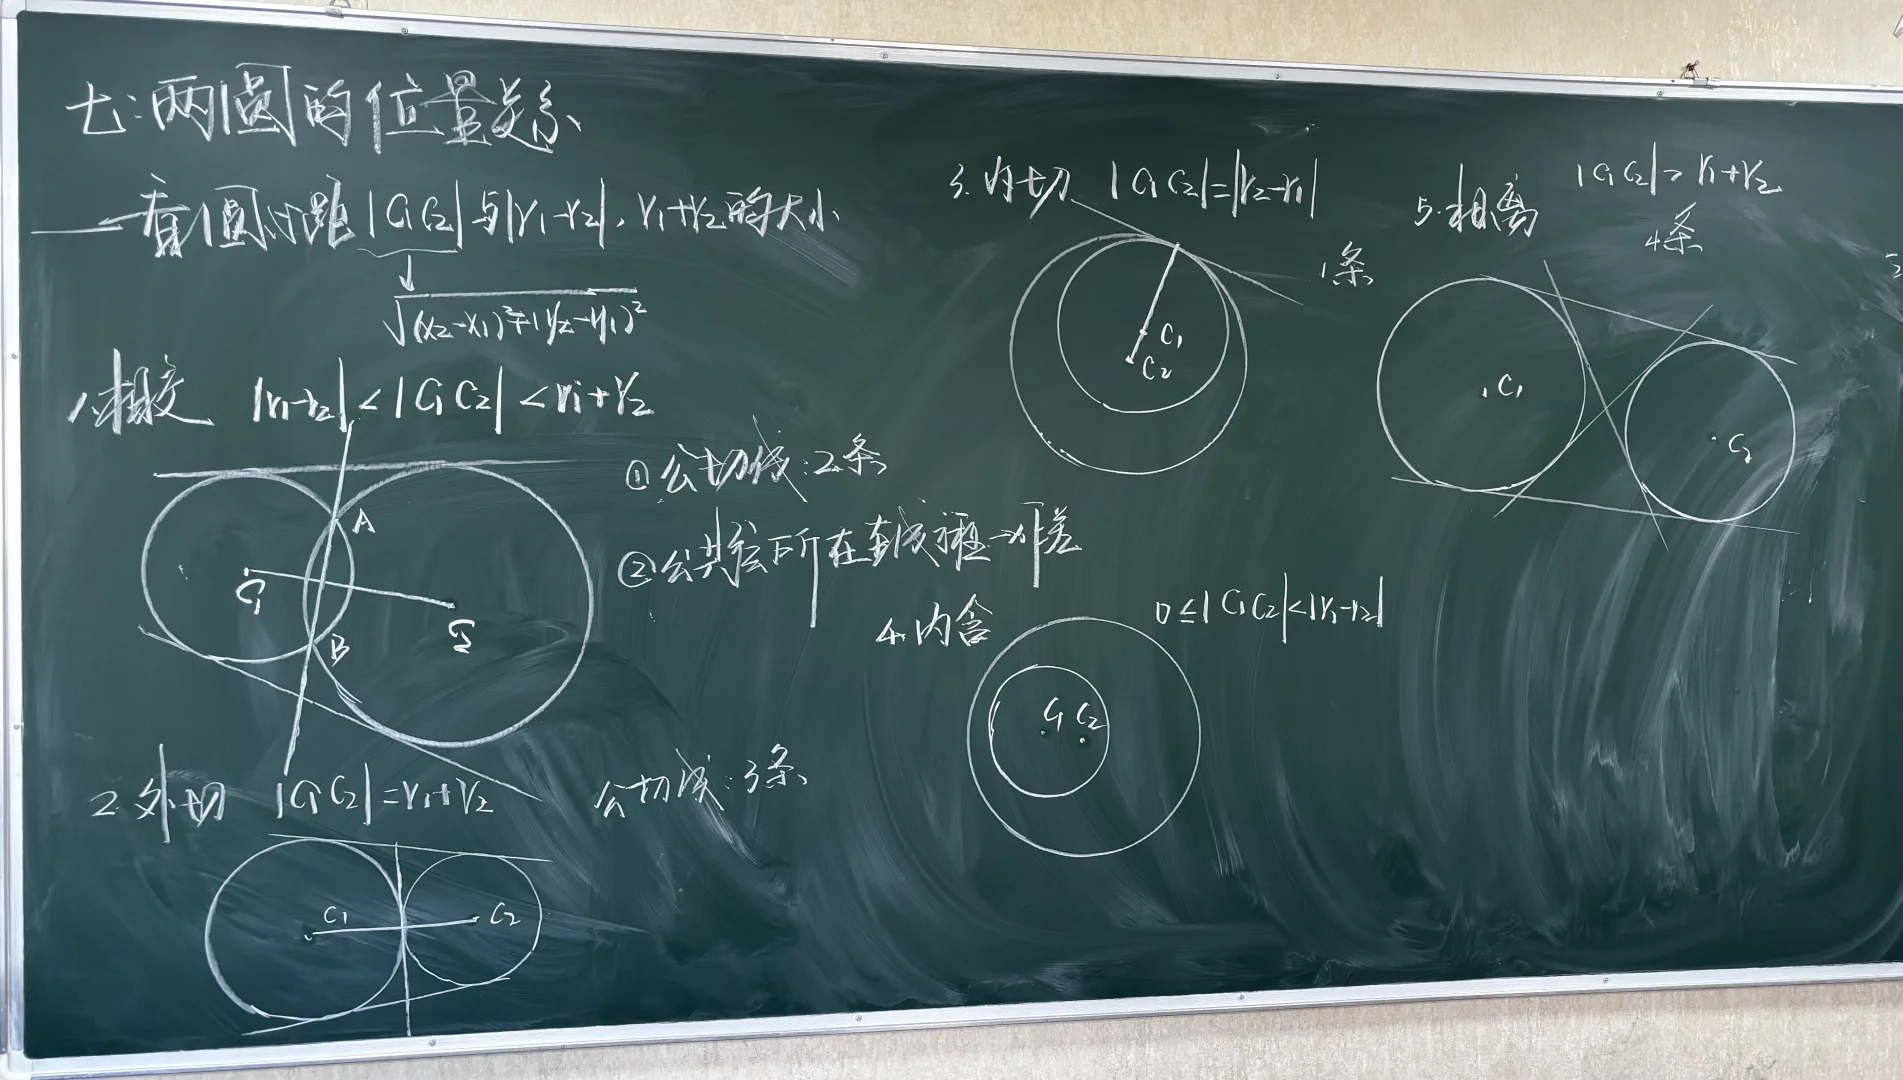 七:两圆的位置关系
一看圆心距|C₁C₂|与|r₁-r₂|,r₁+r₂的大小
↓
√(x₂-x₁)²+(y₂-y₁)²
1.相交 |r₁-r₂|<|C₁C₂|<r₁+r₂
①公切线:2条
②公共弦所在直线方程→作差
A
B
C₁
C₂
2.外切 |C₁C₂|=r₁+r₂ 公切线:3条
C₁
C₂
3.内切 |C₁C₂|=|r₂-r₁|
1条
C₁
C₂
4.内含 0≤|C₁C₂|<|r₁-r₂|
C₁ C₂
5.相离 |C₁C₂|>r₁+r₂
4条
C₁
C₂